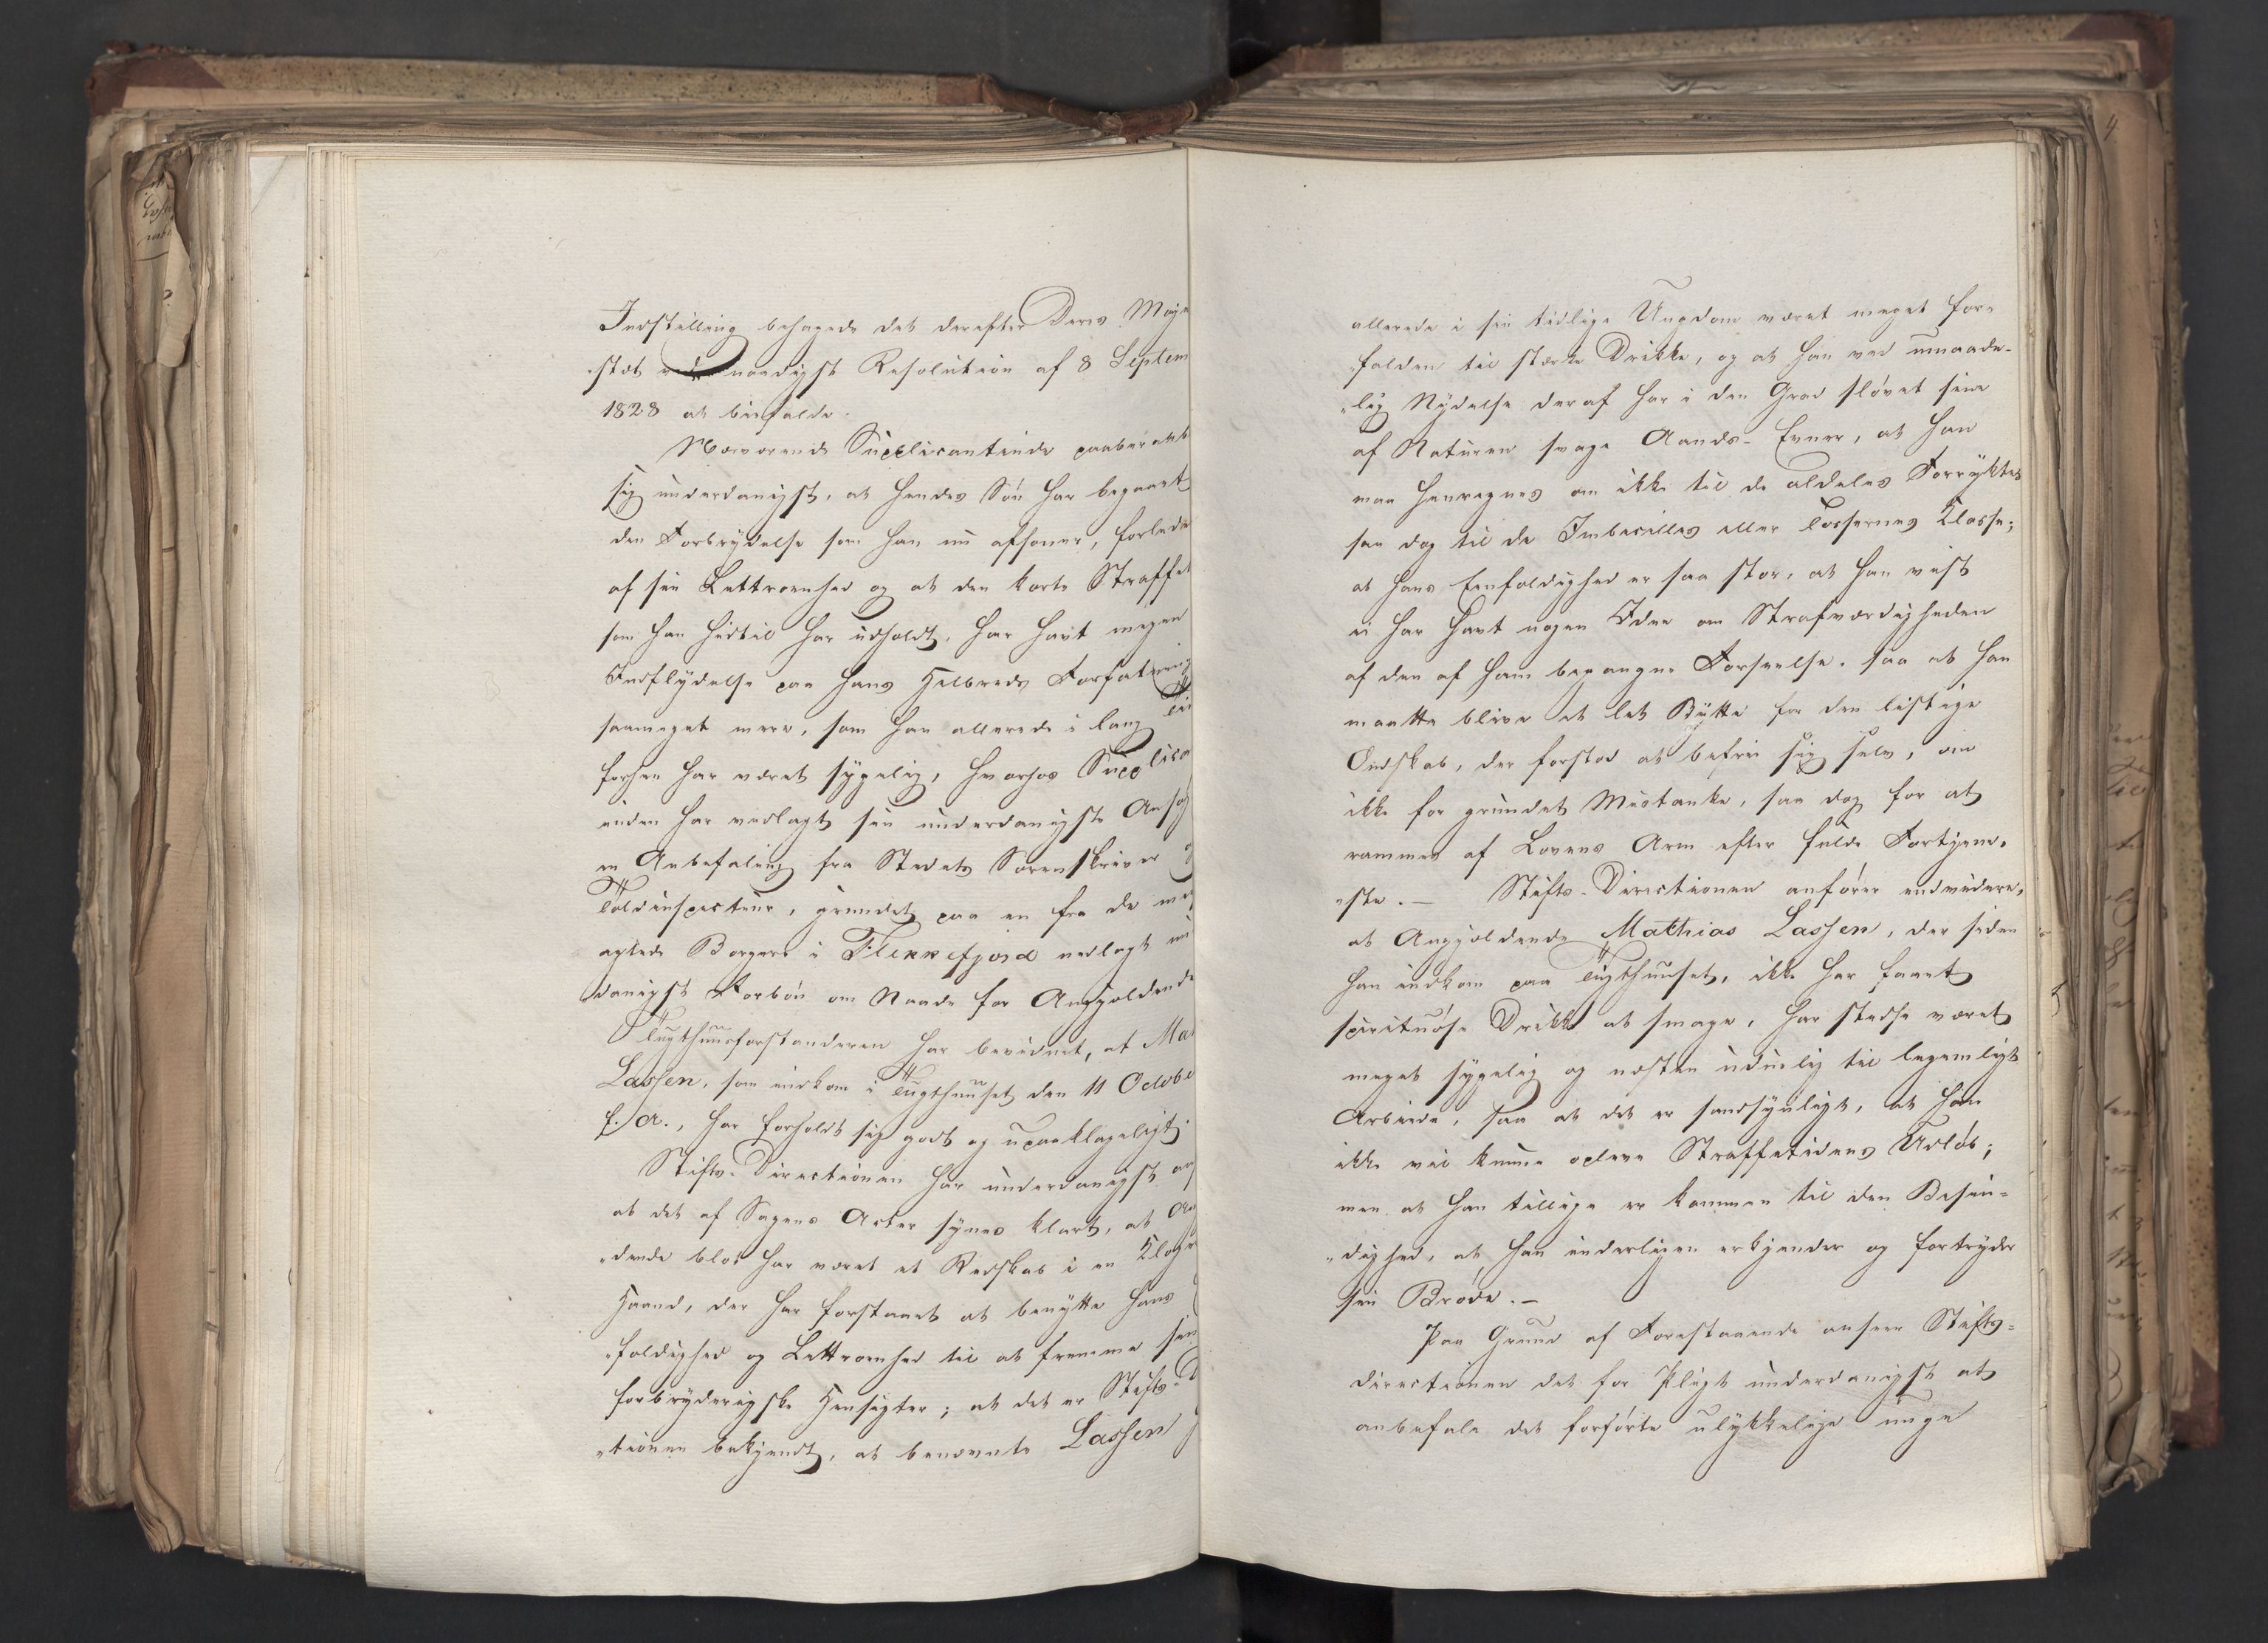 Indstilling behagede det derefter Deres Maje
„stæt ved naadigst Resolution af 8 Septem
1828 at bifalde.
Nærværende Supplicantinde paaberaab
sig underdanigst, at hendes Søn har begaaet
den Forbrydelse som han nu afsoner, forledet
af sin Lettroenhed og at den korte Straffet
som han hidtil har udholdt, har havt megen
Indflydelse paa hans Helbreds Forfatning
saameget mere, som han allerede i lang Tid
forhen har været sygelig, hvorhos Supplica
inden har vedlagt sin underdanigste Ansøg
en Anbefaling fra Stedets Sorenskriver og
Toldinspecteur, grundet paa en fra de me
agtede Borgere i Flekkefjord vedlagt un
danigst Forbøn om Naade for Angjældende
Tugthuusforstanderen har bevidnet, at Mat
Lassen, som indkom i Tugthuuset den 11 Octobe
f. A., har forholdt sig godt og upaaklageligt.
Stifts-Directionen har underdanigst an
at det af Sagens Acter synes klart, at An
„dende blot har været et Redskab i en Kløgt
Haand, der har forstaaet at benytte hans
„foldighed og Lettroenhed til at fremme sin
forbryderiske Hensigter; at det er Stifts-D
„tionen bekjendt, at benævnte Lassen
allerede i sin tidlige Ungdom været meget for„
„falden til stærke Drikke, og at han ved umaade-
„lig Nydelse deraf har i den Grad sløvet sine
af Naturen svage Aands-Evner, at han
maa henregnes om ikke til de aldeles Forrykte
saa dog til de Imbecilles eller Tossernes Klasse;
at hans Eenfoldighed er saa stor, at han vist
ei har havt nogen Idee om Strafværdigheden
af den af ham begangne Forseelse, saa at han
maatte blive et let Bytte for den listige
Ondskab, der forstod at befrie sig selv, om
ikke for grundet Mistanke, saa dog for at
rammes af Lovens Arm efter fulde Fortjene„
„ste. — Stifts-Directionen anfører endvidere,
at Angjældende Mathias Lassen, der siden
han indkom paa Tugthuuset, ikke har faaet
spirituøse Drikke at smage, har stedse været
meget sygelig og næsten uduelig til legemligt
Arbeide, saa at det er sandsynligt, at han
ikke vil kunne opleve Straffetidens Udløb;
men at han tillige er kommen til den Besin=
„dighed, at han inderligen erkjender og fortryder
sin Brøde. —
Paa Grund af Forestaaende anseer Stifts=
directionen det for Pligt underdanigst at
anbefale det forførte ulykkelige unge